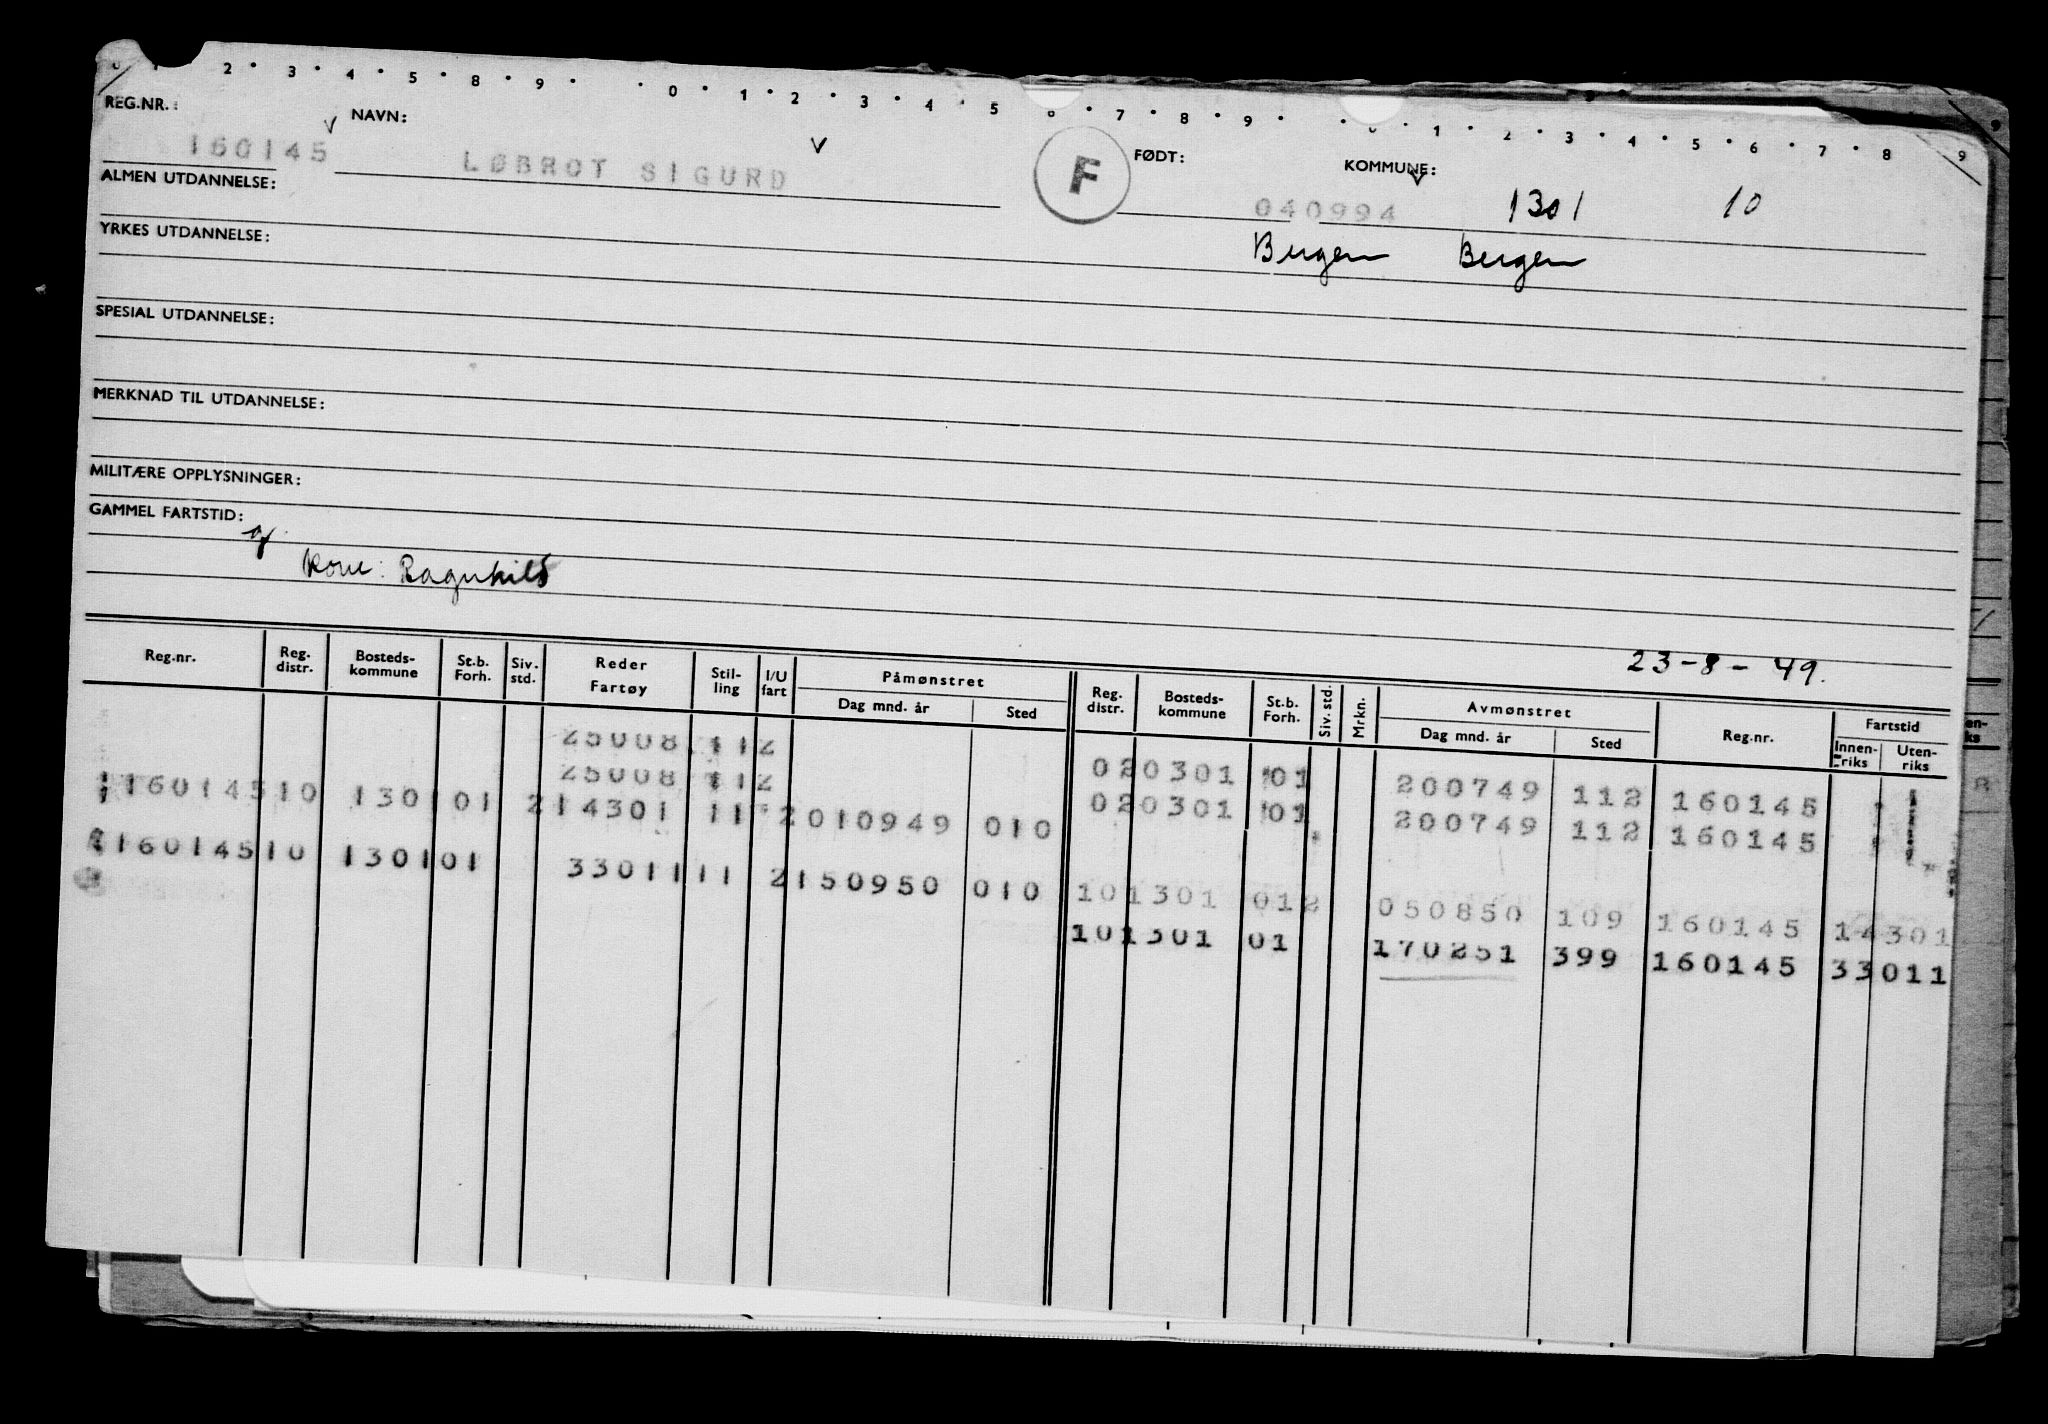 2 • 3 • 4 • 5 • 8 • 9 • • 0 • 1 • 2 • 3 • 4 • 5 • 7 • 8 • 9 • • 1 • 2 • 3 • 4 • 5 • 6 • 7 • 8 9 9
REG.NR.: NAVN: FØDT: KOMMUNE:
160145 V LØBROT SIGURD V F 040994 V 1301 10
ALMEN UTDANNELSE:
Bergen Bergen
YRKES UTDANNELSE:
SPESIAL UTDANNELSE:
MERKNAD TIL UTDANNELSE:
MILITÆRE OPPLYSNINGER:
GAMMEL FARTSTID:
Kone: Ragnhild
23-8-49.
Reg.nr. Reg. distr. Bosteds-kommune St.b. Forh. Siv. std. Reder Fartøy Stil-ling I/U fart Påmønstret Dag mnd. år Sted Reg. distr. Bosteds-kommune St.b. Forh. Siv. std. Mrkn. Avmønstret Dag mnd. år Sted Reg.nr. Fartstid Innen-riks Uten-riks
25008 112 020301 01 200749 112 160145
25008 112 020301 01 200749 112 160145
160145 10 1301 01 2 14301 11 2 010949 010
101301 012 050850 109 160145 14301
160145 10 1301 01 33011 11 2 150950 010
101301 01 170251 399 160145 33011